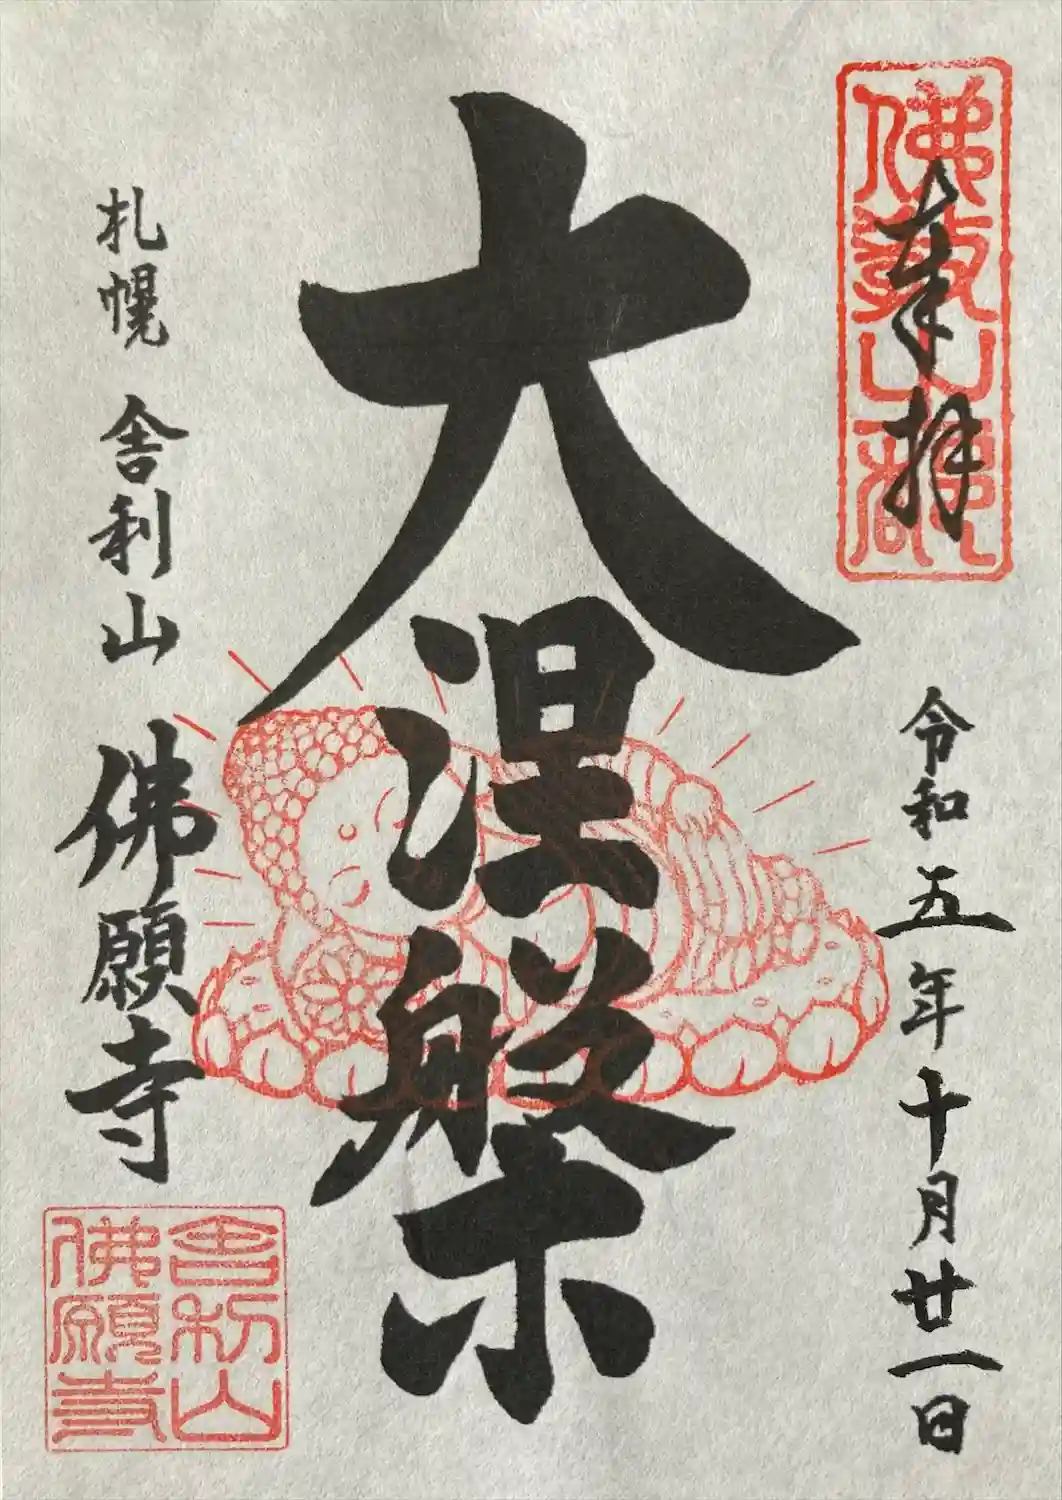 奉拝
令和五年十月廿一日
大涅槃
札幌 舎利山 佛願寺
舎利山
佛願寺